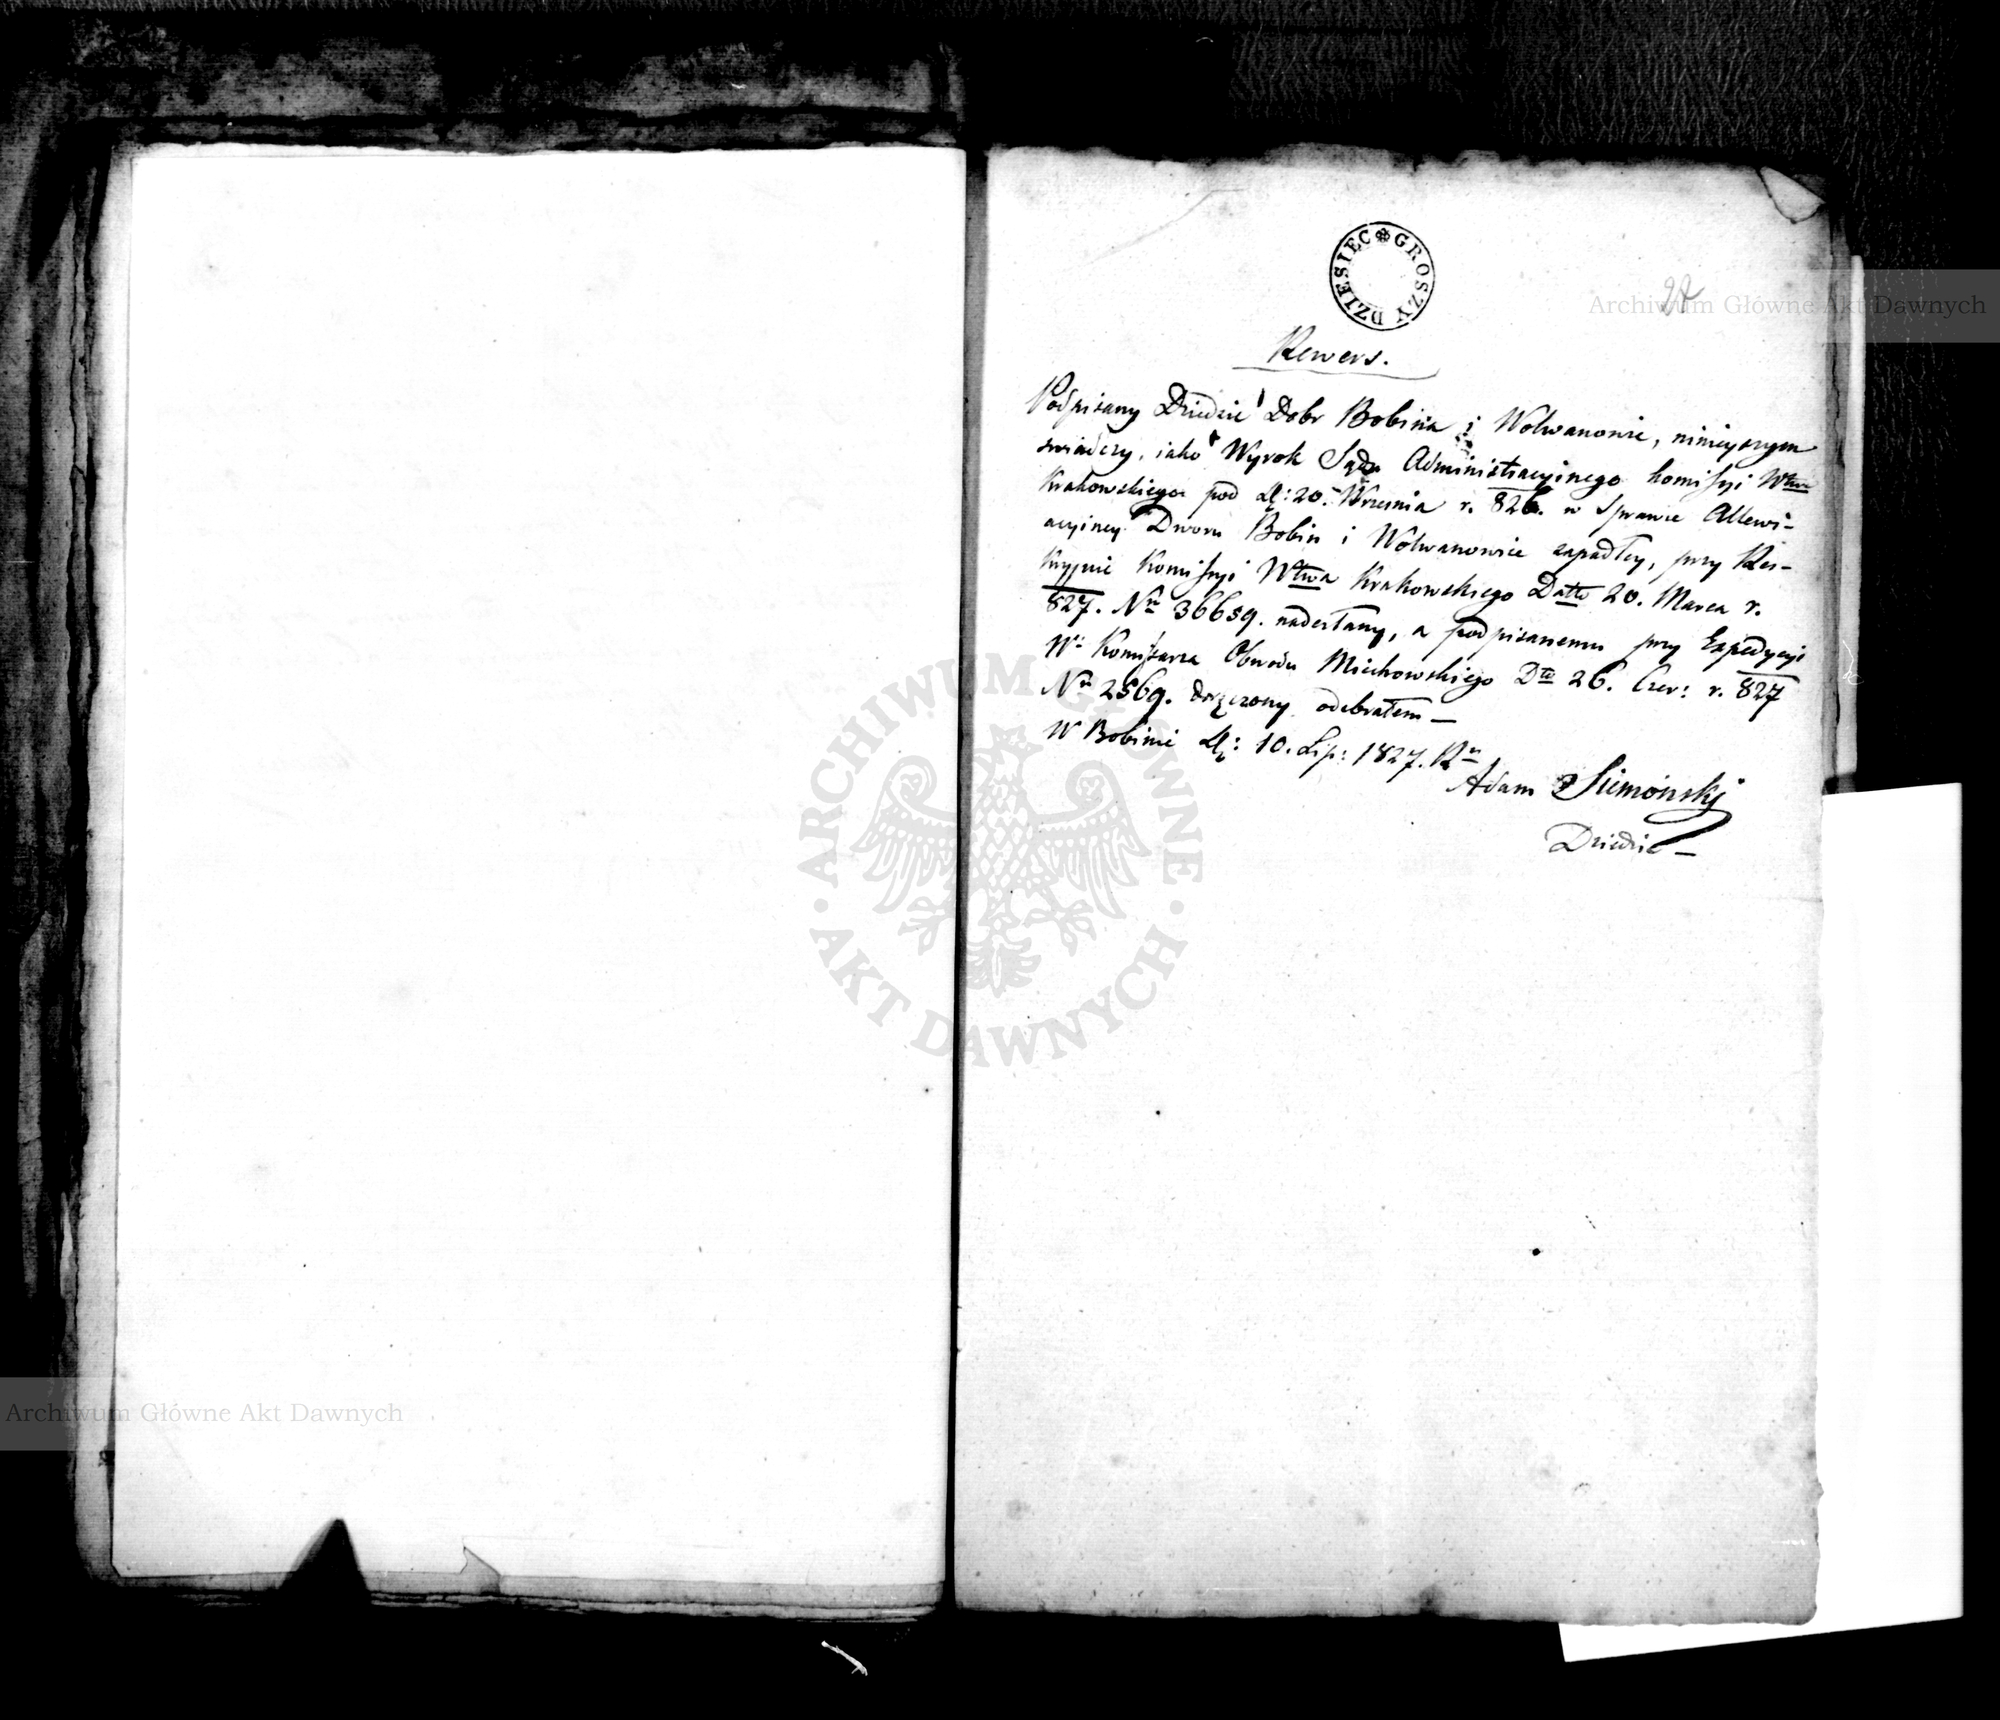 DZIESIEC GROSZY
22
Rewers.
Podpisany Dziedzic Dobr Bobina i Wolwanowic, ninieyszym
swiadczy, iako Wyrok Sądu Administracyinego Komissyi Wtwa
Krakowskiego pod d: 20. Wrzesnia r. 826. w Sprawie Allewi-
acyiney Dworu Bobin i Wolwanowice zapadłey, przy Res-
krypcie Komissyi Wtwa Krakowskiego Datto 20. Marca r.
827. Nro 36659. nadesłany, a podpisanemu przy Expedycyi
W. Komissarza Obwodu Miechowskiego Dto 26. Czer: r. 827
Nro 2569. doręczony odebrałem —
W Bobinie d: 10. Lip: 1827. Rn
Adam Siemoński
Dziedzic —
Archiwum Główne Akt Dawnych
ARCHIWUM GŁÓWNE AKT DAWNYCH
Archiwum Główne Akt Dawnych